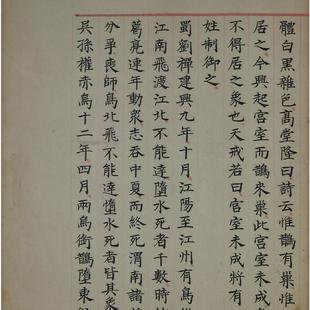 體白黑雜色高堂隆曰詩云惟鵲有巢惟
居之今興起宮室而鵲來巢此宮室未成身
不得居之象也天戒若曰宮室未成將有
姓制御之
蜀劉禪建興九年十月江陽至江州有鳥從
江南飛渡江北不能達墮水死者千數時諸
葛亮連年動衆志吞中夏而終死渭南諸
分爭喪師鳥北飛不能達墮水死者皆其象
吳孫權赤烏十二年四月兩烏銜鵲墮東館